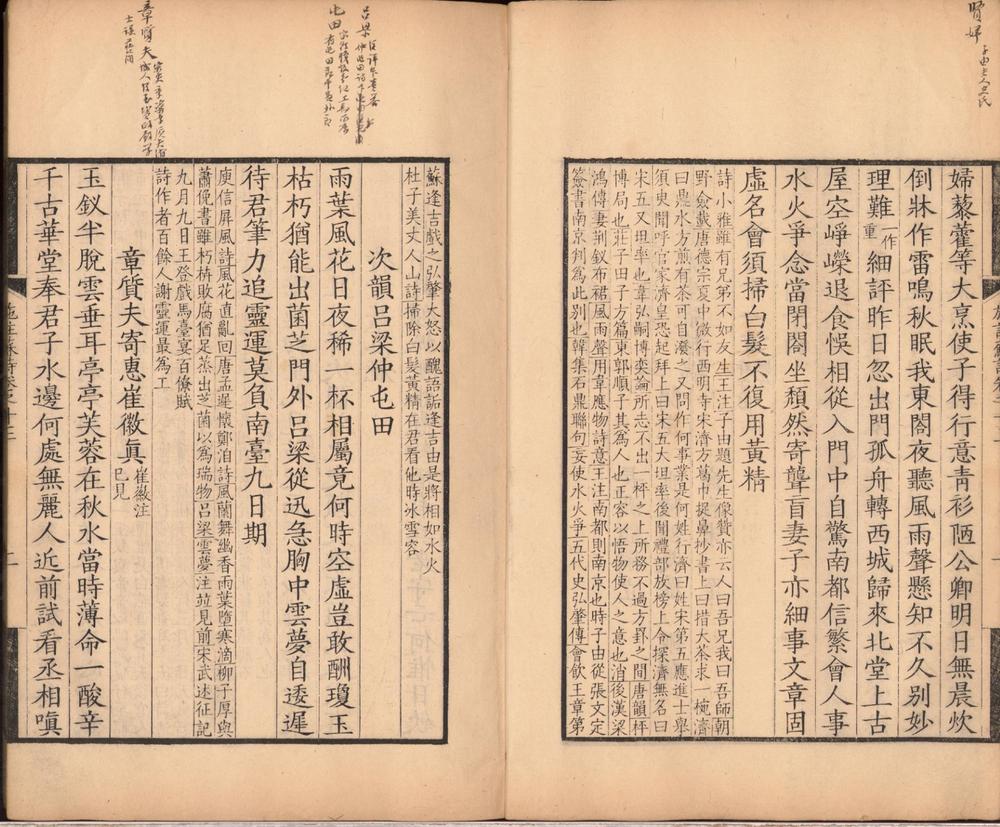 賢婦
子由夫人史氏
婦藜藿等大烹使子得行意青衫陋公卿明日無晨炊
倒牀作雷鳴秋眠我東閤夜聽風雨聲懸知不久别妙
理難一作重細評昨日忽出門孤舟轉西城歸來北堂上古
屋空崢嶸退食悞相從入門中自驚南都信繁會人事
水火爭念當閉閤坐頹然寄聾盲妻子亦細事文章固
虛名會須掃白髮不復用黃精
詩小雅雖有兄弟不如友生王注子由題先生像贊亦云人曰吾兄我曰吾師朝
野僉載唐德宗夏中微行西明寺宋濟方葛巾捉鼻抄書上曰措大茶求一椀濟
曰鼎水方煎有茶可自潑之又問作何事業是何姓行濟曰姓宋第五應進士舉
須臾聞呼官家濟皇恐起拜上曰宋五大坦率後聞禮部放榜上令探濟無名曰
宋五又坦率也韋弘嗣博奕論所志不出一枰之上所務不過方罫之間唐韻枰
博局也莊子田子方篇東郭順子其爲人也正容以悟物使人之意也消後漢梁
鴻傳妻荆釵布裙風雨聲用韋應物詩意王注南都則南京也時子由從張文定
簽書南京判爲此别也韓集石鼎聯句妄使水火爭五代史弘肇傳會飲王章第
蘇逢吉戲之弘肇大怒以醜語詬逢吉由是將相如水火
杜子美丈人山詩掃除白髮黃精在君看他時冰雪容
次韻呂梁仲屯田
雨葉風花日夜稀一杯相屬竟何時空虛豈敢酬瓊玉
枯朽猶能出菌芝門外呂梁從迅急胸中雲夢自逶遲
待君筆力追靈運莫負南臺九日期
庾信屏風詩風花直亂回唐孟遲懷鄭洎詩風蘭舞幽香雨葉墮寒滴柳子厚與
蕭俛書雖朽枿敗腐猶足蒸出芝菌以爲瑞物呂梁雲夢注竝見前宋武述征記
九月九日王登戲馬臺宴百僚賦
詩作者百餘人謝靈運最爲工
章質夫寄惠崔徽真崔徽注已見
玉釵半脫雲垂耳亭亭芙蓉在秋水當時薄命一酸辛
千古華堂奉君子水邊何處無麗人近前試看丞相嗔
呂梁
屯田
章質夫